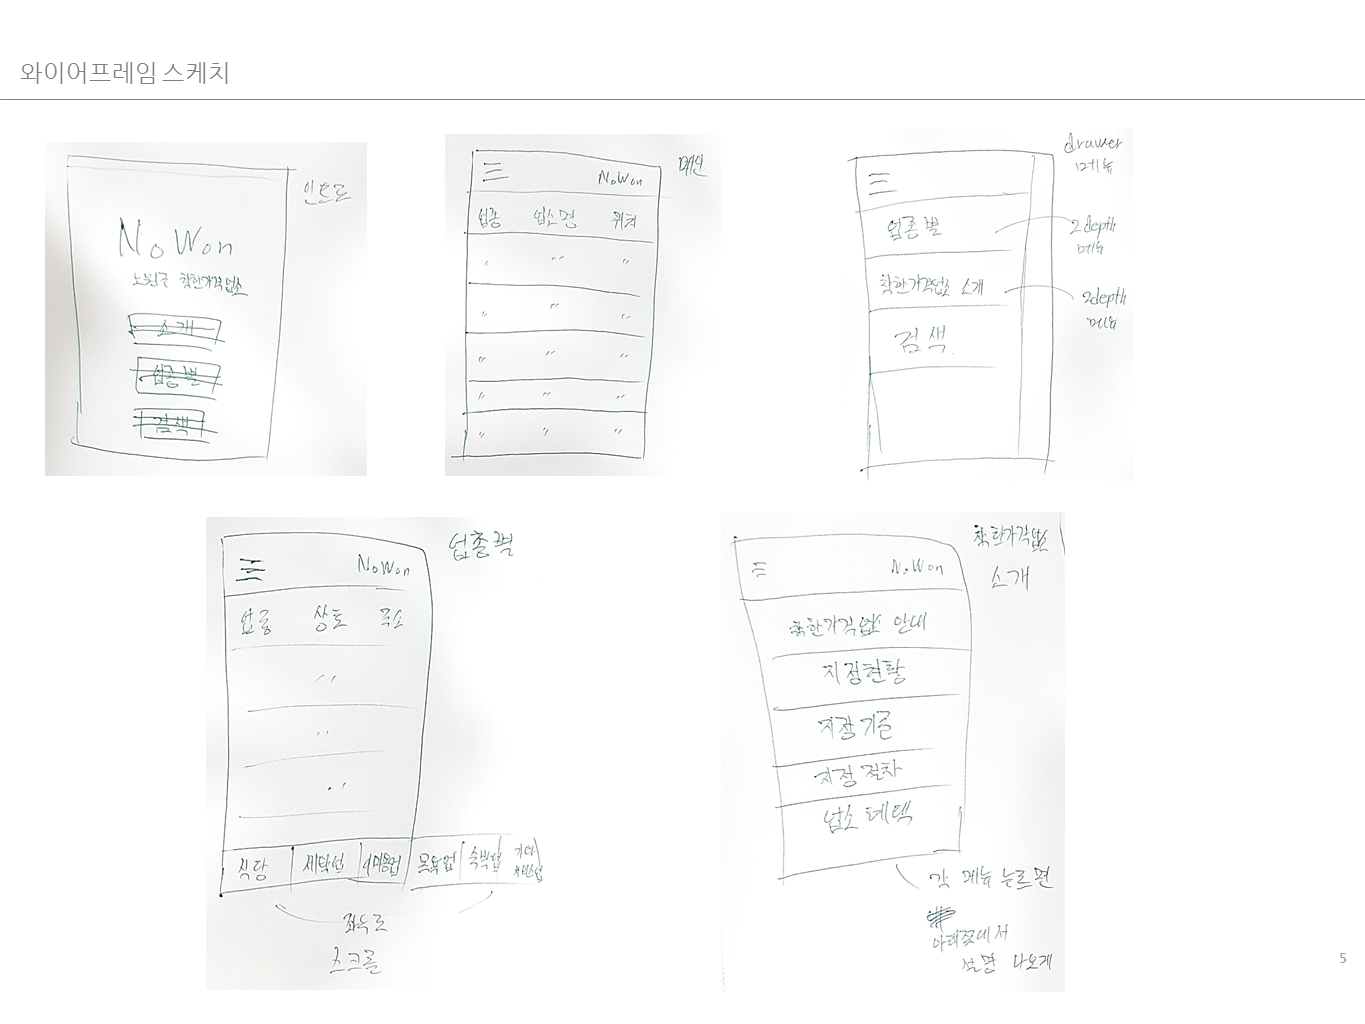 와이어프레임 스케치
인트로
NoWon
노원구 착한가격업소
소개
업종별
검색
메인
NoWon
업종 업소명 위치
〃 〃 〃
〃 〃 〃
〃 〃 〃
〃 〃 〃
〃 〃 〃
drawer
메뉴
업종별
2depth
메뉴
착한가격업소 소개
2depth
메뉴
검색
업종별
NoWon
업종 상호 주소
〃
〃
〃
식당 세탁업 이미용업 목욕업 숙박업 기타
서비스업
좌우로
스크롤
착한가격업소
소개
NoWon
착한가격업소 안내
지정현황
지정기준
지정절차
업소혜택
각 메뉴 누르면
아래쪽에서
설명 나오게
5